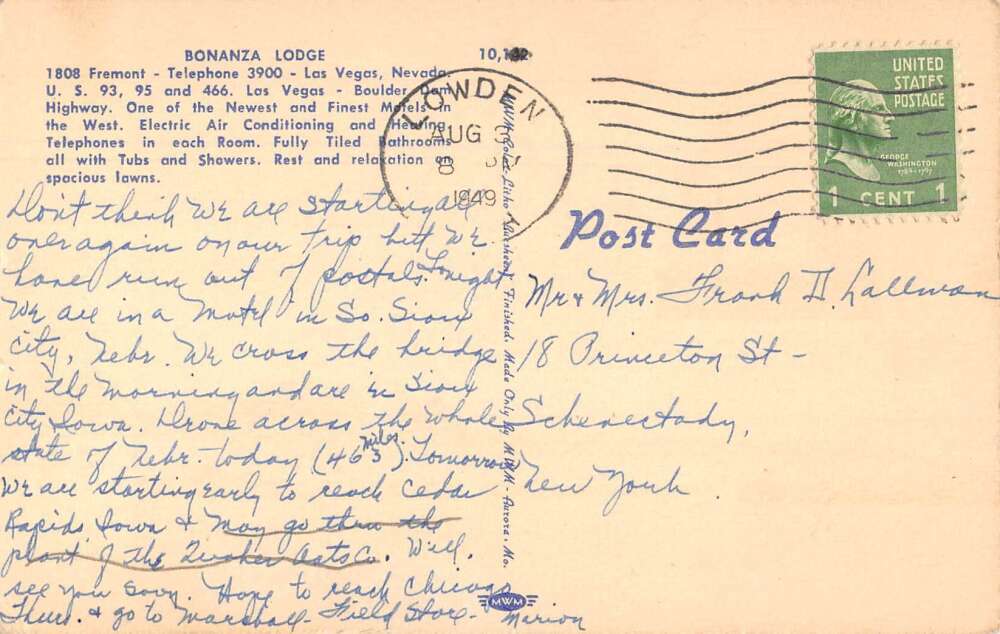 BONANZA LODGE 10,132
1808 Fremont - Telephone 3900 - Las Vegas, Nevada.
U. S. 93, 95 and 466. Las Vegas - Boulder Dam
Highway. One of the Newest and Finest Motels in
the West. Electric Air Conditioning and Heating.
Telephones in each Room. Fully Tiled Bathrooms
all with Tubs and Showers. Rest and relaxation on
spacious lawns.
LOWDEN
AUG 3
8
1949
UNITED
STATES
POSTAGE
GEORGE
WASHINGTON
1 CENT 1
Post Card
Don't think we are starting all
over again on our trip but we
have run out of postals. Tonight
We are in a Motel in So. Sioux
City, Nebr. We cross the bridge
in the morning and are in Sioux
City Iowa. Drove across the whole
state of Nebr. today (463 miles). Tomorrow
We are starting early to reach Cedar
Rapids Iowa & may go thru the
plant of the Quaker Oats Co. Will
see you soon. Hope to reach Chicago
Thurs. & go to Marshall-Field Store - Marion
MWM Color-Litho Finished. Made Only By MWM - Aurora, Mo.
Mr & Mrs. Frank D. Lallman
18 Princeton St -
Schenectady,
New York.
MWM